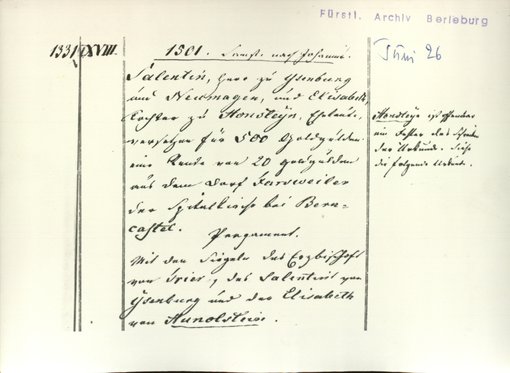 Fürstl. Archiv Berleburg
Juni 26
1331 XVIII. 1501. Samst. nach Johanni.
Salentin, Herr zu Ysenburg
und Neumagen, und Elisabeth,
Tochter zu Honsteyn, Eheleute,
versetzen für 500 Goldgulden
eine Rente von 20 goldgulden
aus dem Dorf Farsweiler
der Spitalkirche bei Bern-
castel.
Pergament.
Mit den Siegeln des Erzbischofs
von Trier, des Salentin von
Ysenburg und der Elisabeth
von Hunolstein.
Honsteyn ist offenbar
ein Fehler des Schreibers
der Urkunde. Siehe
die folgende Urkunde.